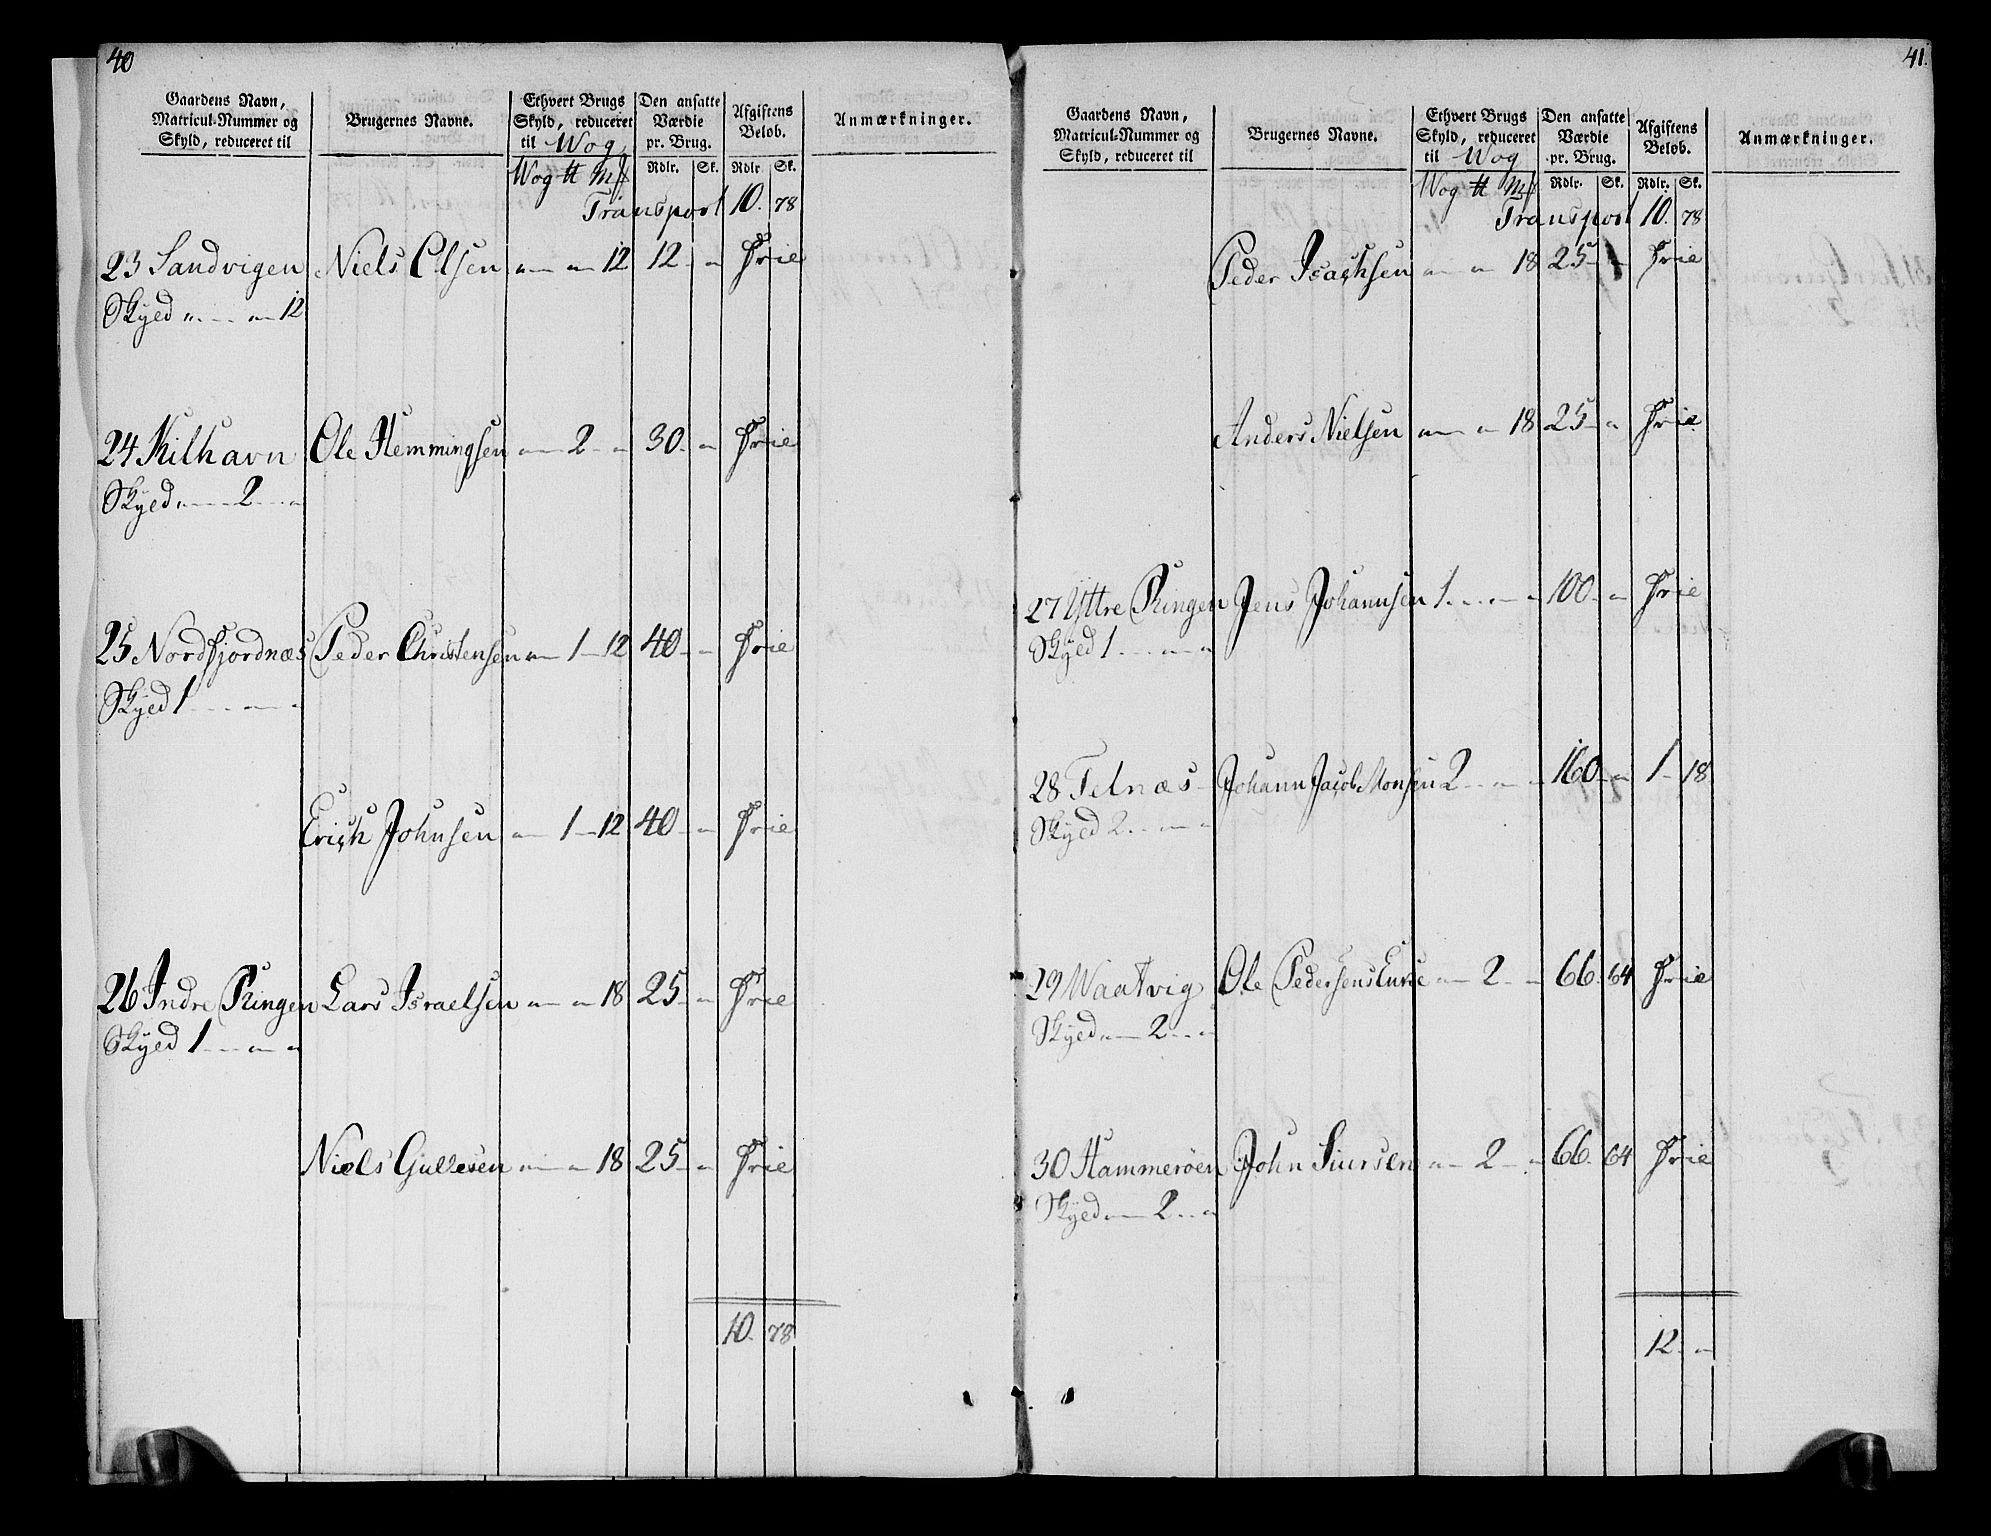 40
Gaardens Navn,
Matricul-Nummer og
Skyld, reduceret til
Brugernes Navne.
Ethvert Brugs
Skyld, reduceret
til Wog
Den ansatte
Værdie
pr. Brug.
Afgiftens
Beløb.
Anmærkninger.
Wog ℔ Mk Rdlr. Sk. Rdlr Sk.
Transport 10. 78
23 Sandvigen Niels Elsen " " 12 12 " Frie
Skyed " " 12
24 Kilhavn Ole Hemmingsen " 2 " 30 " Frie
Skyed " 2 "
25 Nordfjordnæs Peder Christensen " 1 12 40 " Frie
Skyed 1 " "
Erich Johnsen " 1 12 40 " Frie
26 Indre Ringen Lars Israelsen " " 18 25 " Frie
Skyed 1 " "
Niels Gullesen " " 18 25 " Frie
10. 78
41.
Gaardens Navn,
Matricul-Nummer og
Skyld, reduceret til
Brugernes Navne.
Ethvert Brugs
Skyld, reduceret
til Wog
Den ansatte
Værdie
pr. Brug.
Afgiftens
Beløb.
Anmærkninger.
Wog ℔ Mk Rdlr. Sk. Rdlr. Sk.
Transport 10. 78
Peder Isachsen " " 18 25 " Frie
Anders Nielsen " " 18 25 " Frie
27 Yttre Ringen Jens Johannsen 1 " " 100 " Frie
Skyed 1 " "
28 Telnæs Johann Jacob Monsen 2 " " 160 " 1 18
Skyed 2 " "
29 Waatvig Ole Pedersens Enke " 2 " 66 64 Frie
Skyed " 2 "
30 Hammerøen John Siursen " 2 " 66 64 Frie
Skyed " 2 "
12 "